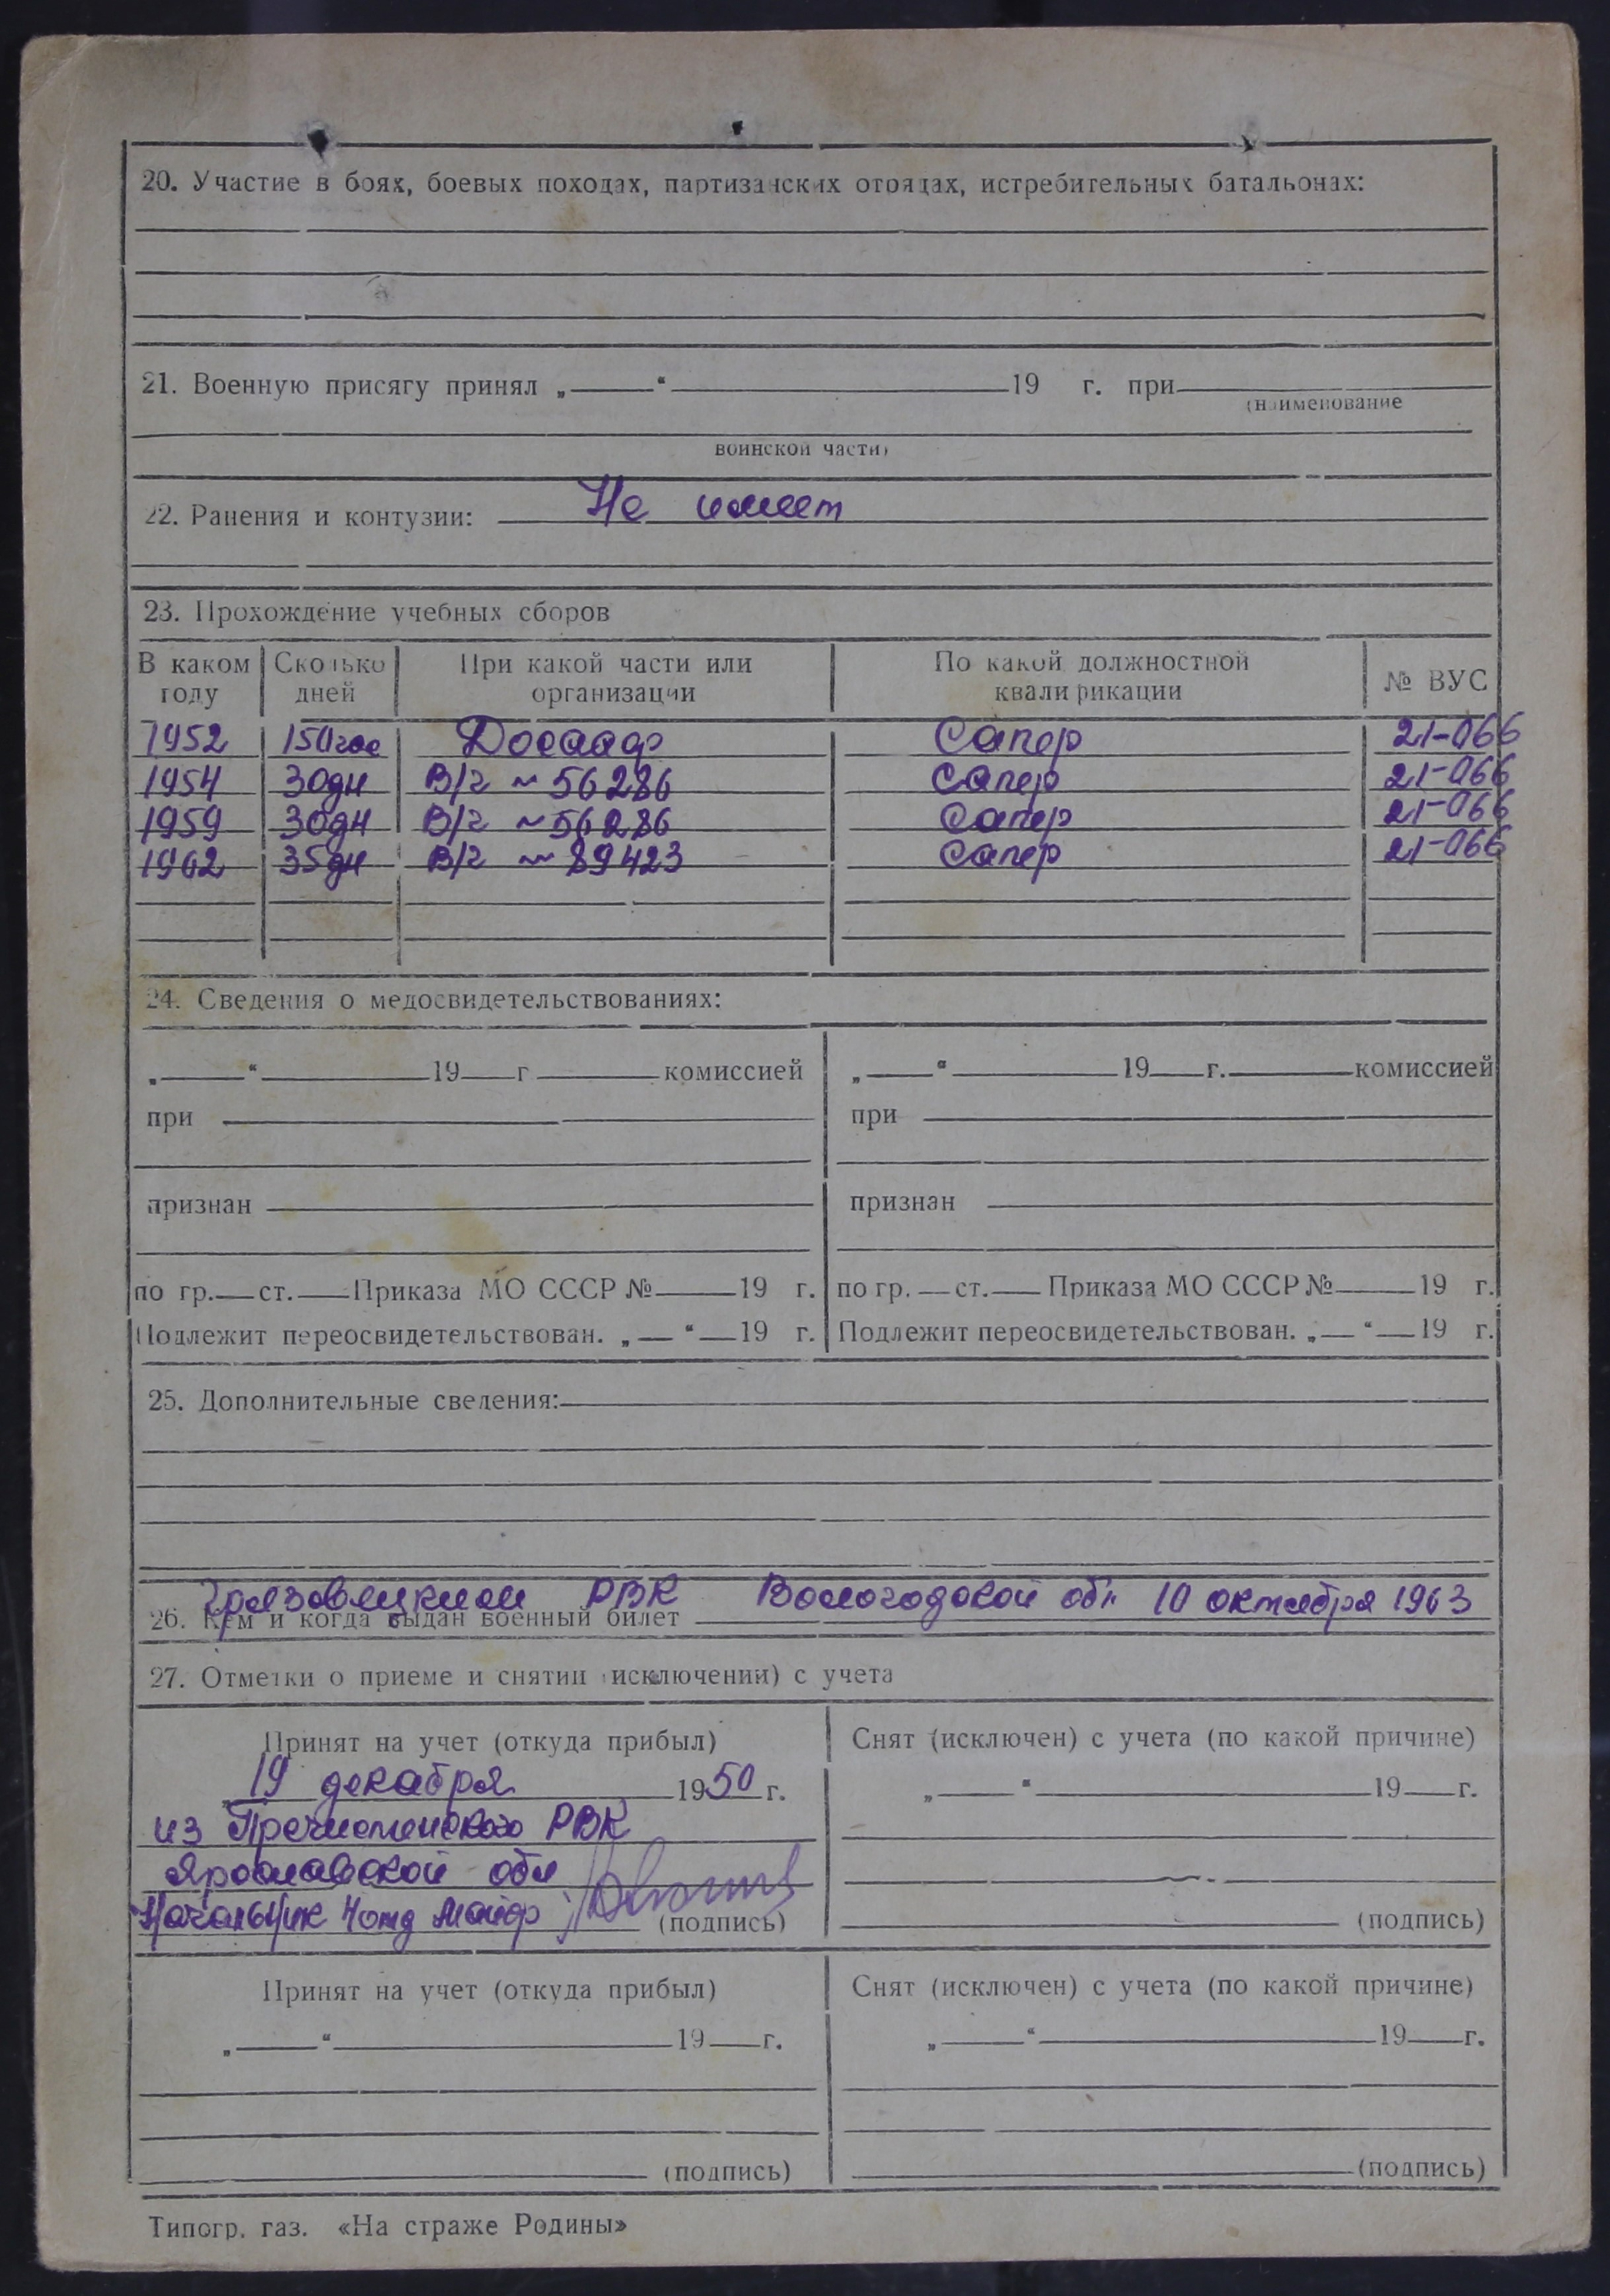 20. Участие в боях, боевых походах, партизанских отрядах, истребительных батальонах:
21. Военную присягу принял „ “ 19 г. при
(наименование
воинской части)
22. Ранения и контузии: Не имеет
23. Прохождение учебных сборов
В каком году Сколько дней При какой части или организации По какой должностной квалификации № ВУС
1952 150час Досааф Сапер 21-066
1954 30дн В/ч ~ 56286 Сапер 21-066
1959 30дн В/ч ~ 56286 Сапер 21-066
1962 35дн В/ч ~ 89423 Сапер 21-066
24. Сведения о медосвидетельствованиях:
„ “ 19 г комиссией „ “ 19 г. комиссией
при при
признан признан
по гр. ст. Приказа МО СССР № 19 г. по гр. ст. Приказа МО СССР № 19 г.
Подлежит переосвидетельствован. „ “ 19 г. Подлежит переосвидетельствован. „ “ 19 г.
25. Дополнительные сведения:
Грязовецким РВК Вологодской обл 10 октября 1963
26. Кем и когда выдан военный билет
27. Отметки о приеме и снятии (исключении) с учета
Принят на учет (откуда прибыл) Снят (исключен) с учета (по какой причине)
„19 декабря 1950 г. „ “ 19 г.
из Пречистенского РВК
Ярославской обл
Начальник 4отд майор (подпись) (подпись)
Принят на учет (откуда прибыл) Снят (исключен) с учета (по какой причине)
„ “ 19 г. „ “ 19 г.
(подпись) (подпись)
Типогр. газ. «На страже Родины»